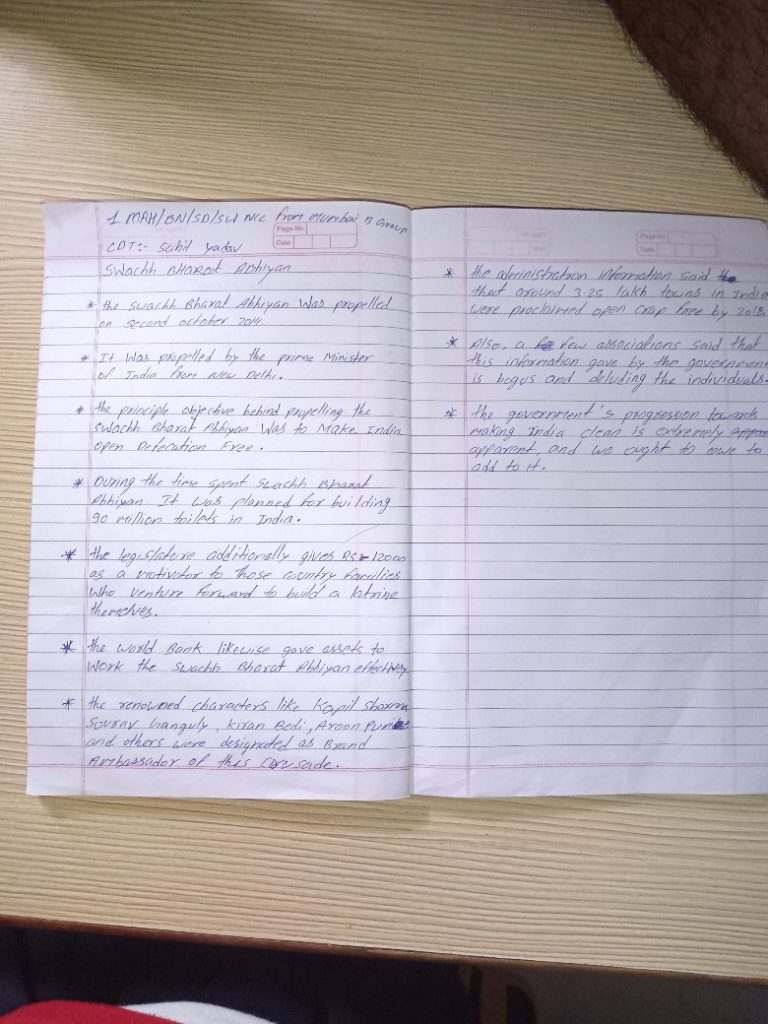 1 MAH/BN/SD/SW NCC from Mumbai B Group
Page No.
Date
CDT:- Sahil yadav
Swachh BHARAT Abhiyan
* the swachh Bharat Abhiyan Was propelled
on second october 2014.
* It Was propelled by the prime Minister
of India from New Delhi.
* the principle objective behind propelling the
swachh Bharat Abhiyan Was to Make India
Open Defecation Free.
* During the time spent swachh Bharat
Abhiyan. It was planned for building
90 Million toilets in India.
* the legislature additionally gives Rs 12000
as a motivator to those country families
Who venture forward to build a latrine
themselves.
* the world Bank likewise gave assets to
Work the Swachh Bharat Abhiyan effectively
* the renowned characters like Kapil Sharma
Sourav Ganguly, Kiran Bedi, Aroon Purie
and others were designated as Brand
Ambassador of this Crusade.
Page No.
Date
* the administration information said the
that around 3.25 lakh towns in India
were proclaimed open crap free by 2018.
* Also, a few associations said that
this information gave by the government
is bogus and deluding the individuals.
* the government's progression towards
making India clean is extremely
apparent, and we ought to owe to
add to it.